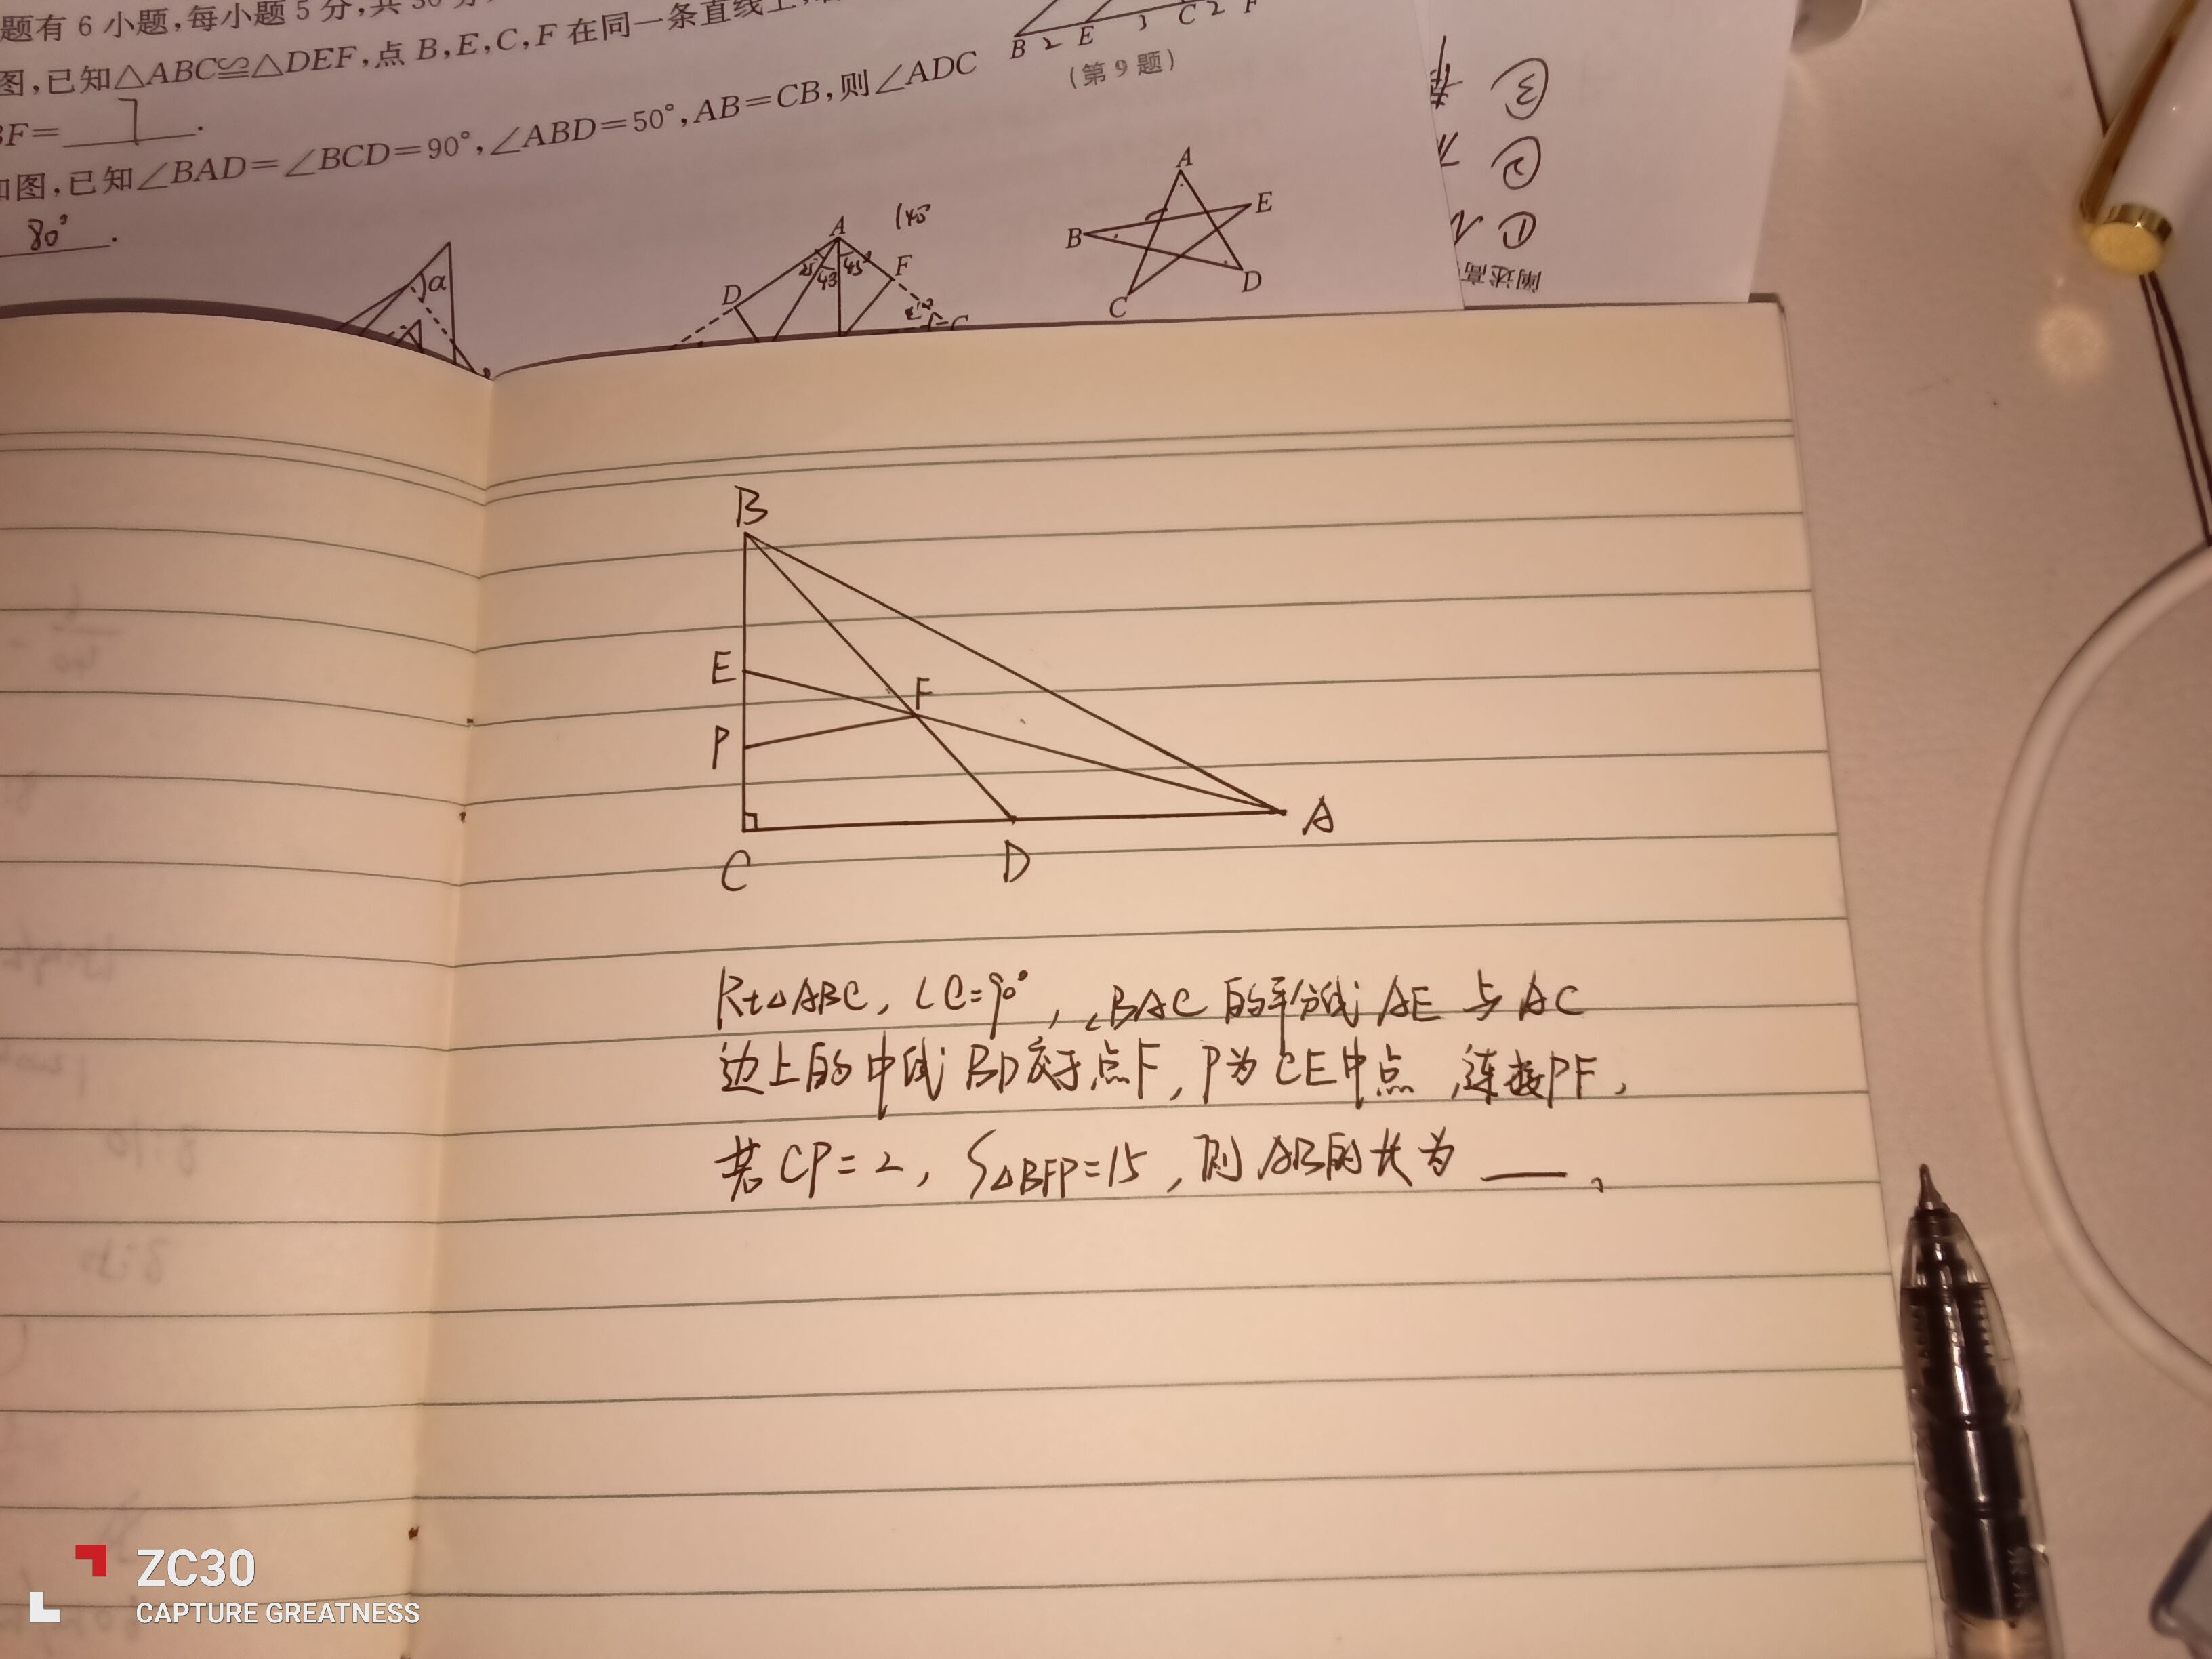 题有 6 小题,每小题 5 分,共 30 分
图,已知△ABC≌△DEF,点 B,E,C,F 在同一条直线上,
BF= 7 .
如图,已知∠BAD=∠BCD=90°,∠ABD=50°,AB=CB,则∠ADC
80° .
B 2 E 3 C 2 F
(第 9 题)
③
②
①
阐述高
α
A
D
F
25° 43 45°
C
A
B
E
C
D
B
E
F
P
C
D
A
Rt△ABC, ∠C=90°, ∠BAC 的平分线 AE 与 AC
边上的中线 BD 交于点F, P为 CE中点, 连接PF,
若 CP=2, S△BFP=15, 则 AB的长为 ___ 。
8:10
ZC30
CAPTURE GREATNESS